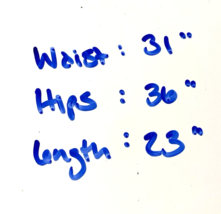 Waist: 31"
Hips : 36"
Length : 23"